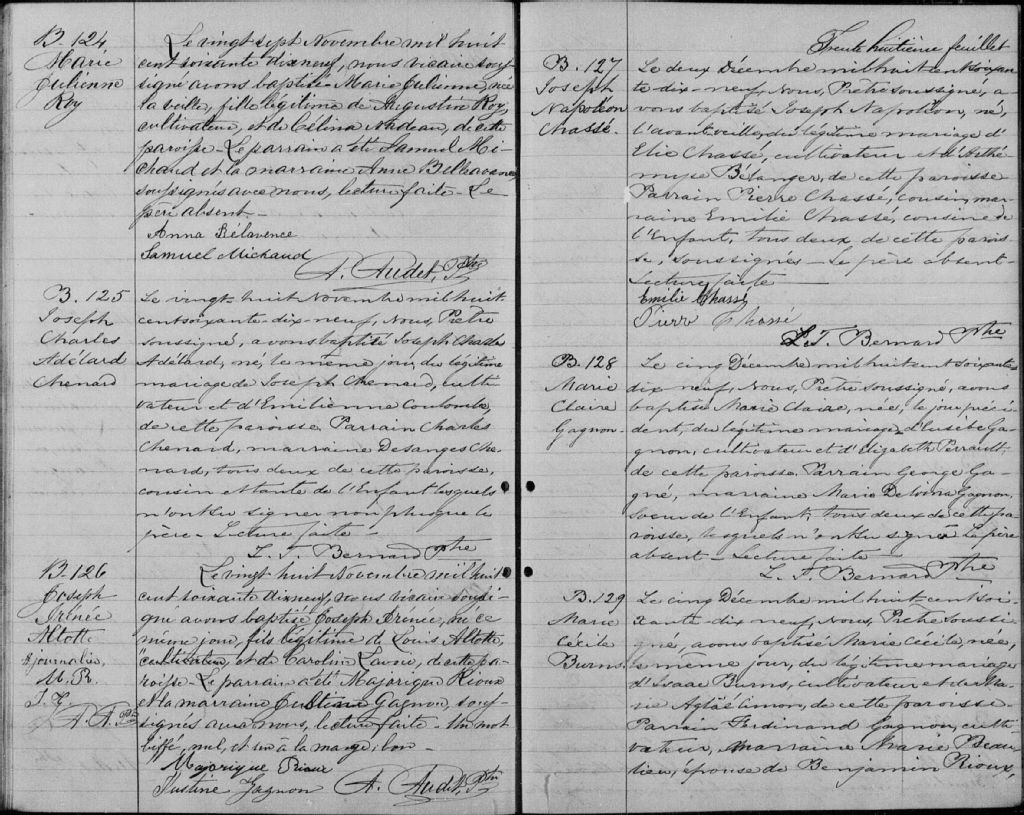 B. 124
Marie
Julienne
Roy
Le vingt sept Novembre mil huit
cent soixante dixneuf, nous vicaire sous
signé avons baptisé Marie Julienne, née
la veille, fille légitime de Augustin Roy,
cultivateur, et de Célina Nadeau, de cette
paroisse - Le parrain a été Samuel Mi-
chaud et la marraine Anne Bellavance
soussignés avec nous, lecture faite - Le
père absent -
Anna Bélavence
Samuel Michaud
A. Audet, Ptre
B. 125
Joseph
Charles
Adélard
Chenard
Le vingt-huit Novembre mil huit
cent soixante-dix-neuf, Nous, Prêtre
soussigné, avons baptisé Joseph Charles
Adélard, né, le même jour, du légitime
mariage de Joseph Chenard, culti-
vateur et d'Emilienne Coulombe,
de cette paroisse. Parrain Charles
Chenard, marraine Desanges Che-
nard, tous deux de cette paroisse,
cousin et tante de l'Enfant lesquels
n'ont su signer non plus que le
père - Lecture faite -
L. T. Bernard Ptre
B. 126
Joseph
Irénée
Altotte
journalier,
M. R.
J. G.
A. A. Ptre
Le vingt huit Novembre mil huit
cent soixante dixneuf, nous vicaire soussi-
gné avons baptisé Joseph Irénée, né ce
même jour, fils légitime de Louis Altotte
cultivateur, et de Caroline Lavoie, de cette pa-
roisse - Le parrain a été Majorique Rioux
et la marraine Justine Gagnon, sous-
signés avec nous, lecture faite - Un mot
biffé, nul, et un à la marge, bon -
Majorique Rioux
Justine Gagnon
A. Audet, Ptre
Trente huitième feuillet
B. 127
Joseph
Napoléon
Chassé.
Le deux Décembre mil huit cent soixan-
te-dix-neuf, Nous, Prêtre soussigné, a-
vons baptisé Joseph Napoléon, né,
l'avant veille, du légitime mariage d'
Elie Chassé, cultivateur et d'Arthé-
mise Bélanger, de cette paroisse
Parrain Pierre Chassé, cousin, mar-
raine Emilie Chassé, cousine de
l'Enfant, tous deux de cette parois-
se, soussignés - Le père absent -
Lecture faite -
Emélie Chassé
Pierre Chassé
L. T. Bernard Ptre
B. 128
Marie
Claire
Gagnon.
Le cinq Décembre mil huit cent soixante
dix neuf, Nous, Prêtre soussigné, avons
baptisé Marie Claire, née, le jour précé-
dent, du légitime mariage d'Eusèbe Ga-
gnon, cultivateur et d'Elizabeth Perrault,
de cette paroisse. Parrain George Ga-
gné, marraine Marie Delvina Gagnon,
soeur de l'Enfant, tous deux de cette pa-
roisse, lesquels n'ont su signer. Le père
absent - Lecture faite -
L. T. Bernard Ptre
B. 129
Marie
Cécile
Burns.
Le cinq Décembre mil huit cent soi-
xante-dix neuf, Nous, Prêtre soussi-
gné, avons baptisé Marie Cécile, née,
le même jour, du légitime mariage
d'Isaac Burns, cultivateur et de Ma-
rie Aglaé Simon, de cette paroisse.
Parrain Ferdinand Gagnon, culti-
vateur, Marraine Marie Beau-
lieu, épouse de Benjamin Rioux,